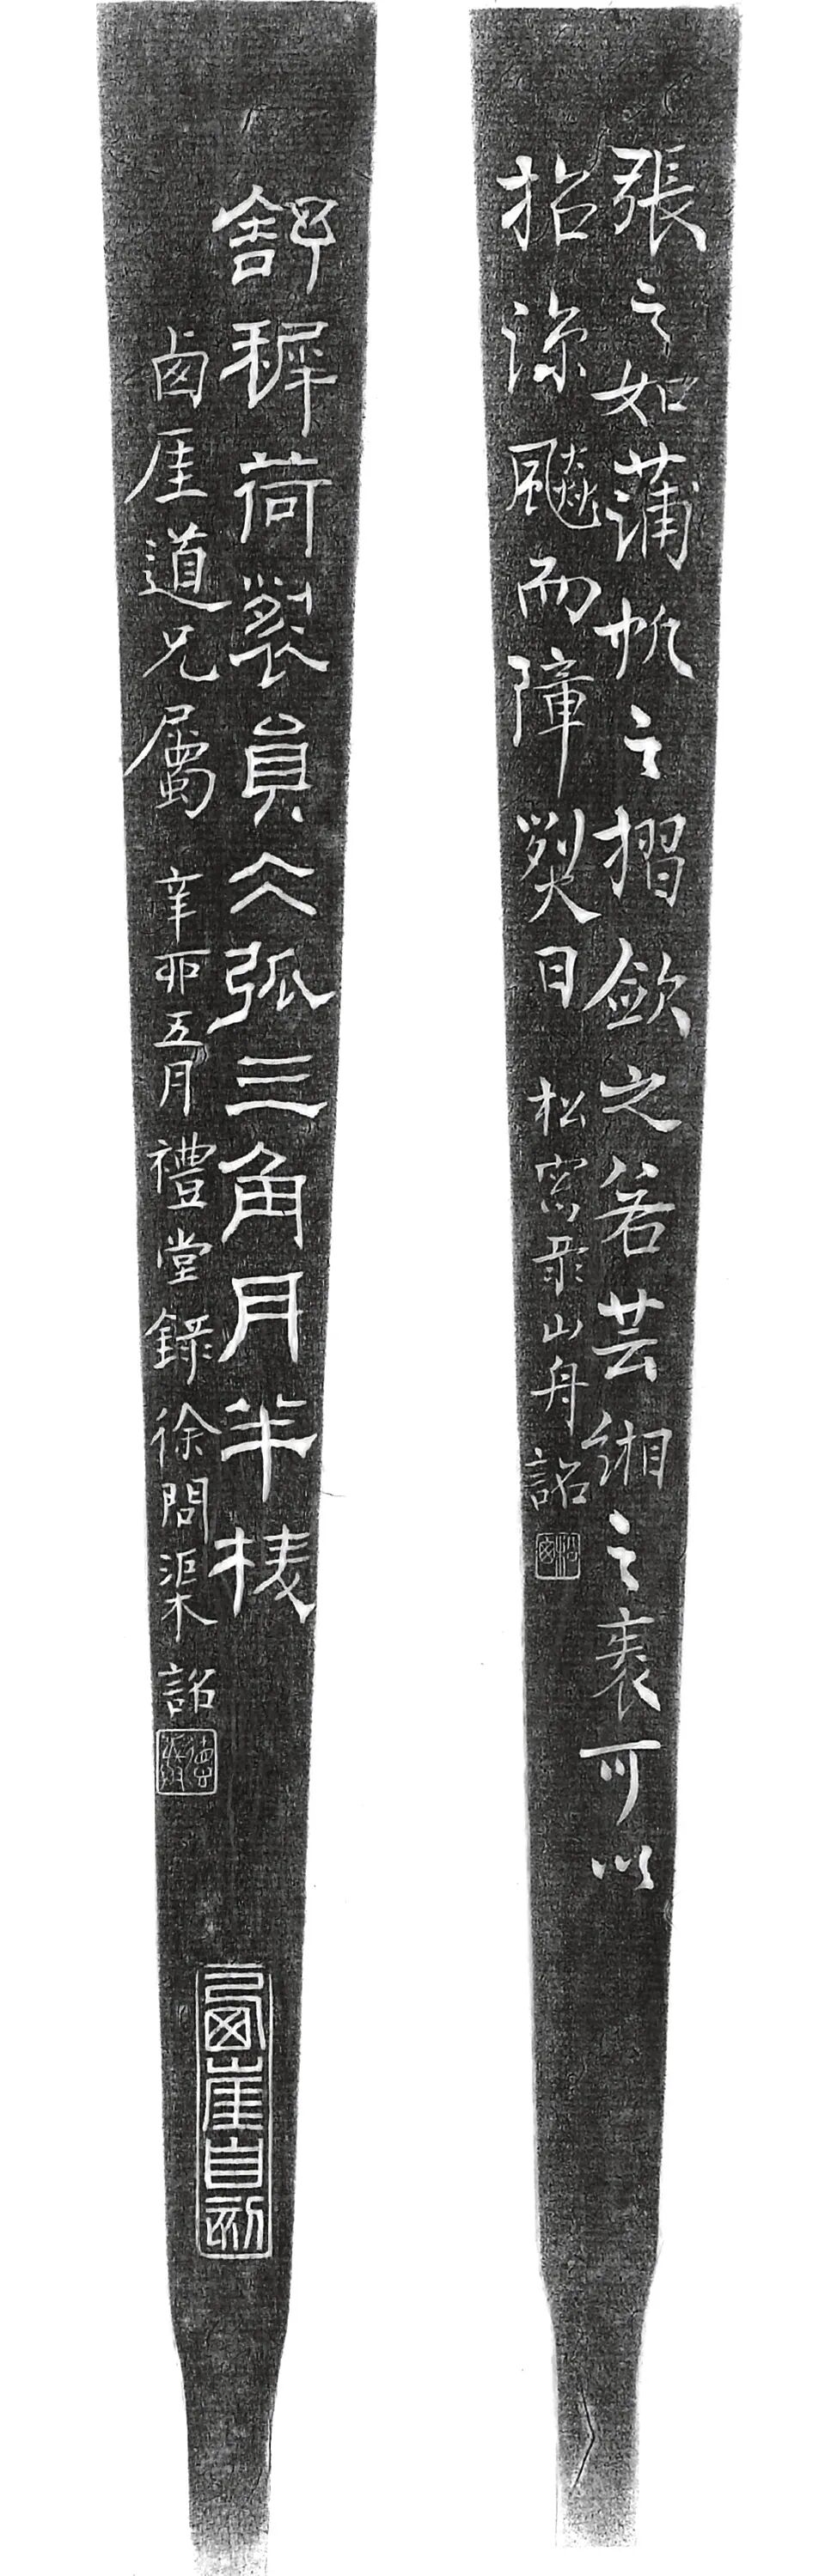 張之如蒲帆之摺斂之若芸緗之裹可以
招涼飈而障烈日
松窗录山舟詺
松窗
舒稺荷裂員仌弧三角月半棱
卥厓道兄屬 辛卯五月禮堂錄徐問渠詺
卥崖自刻